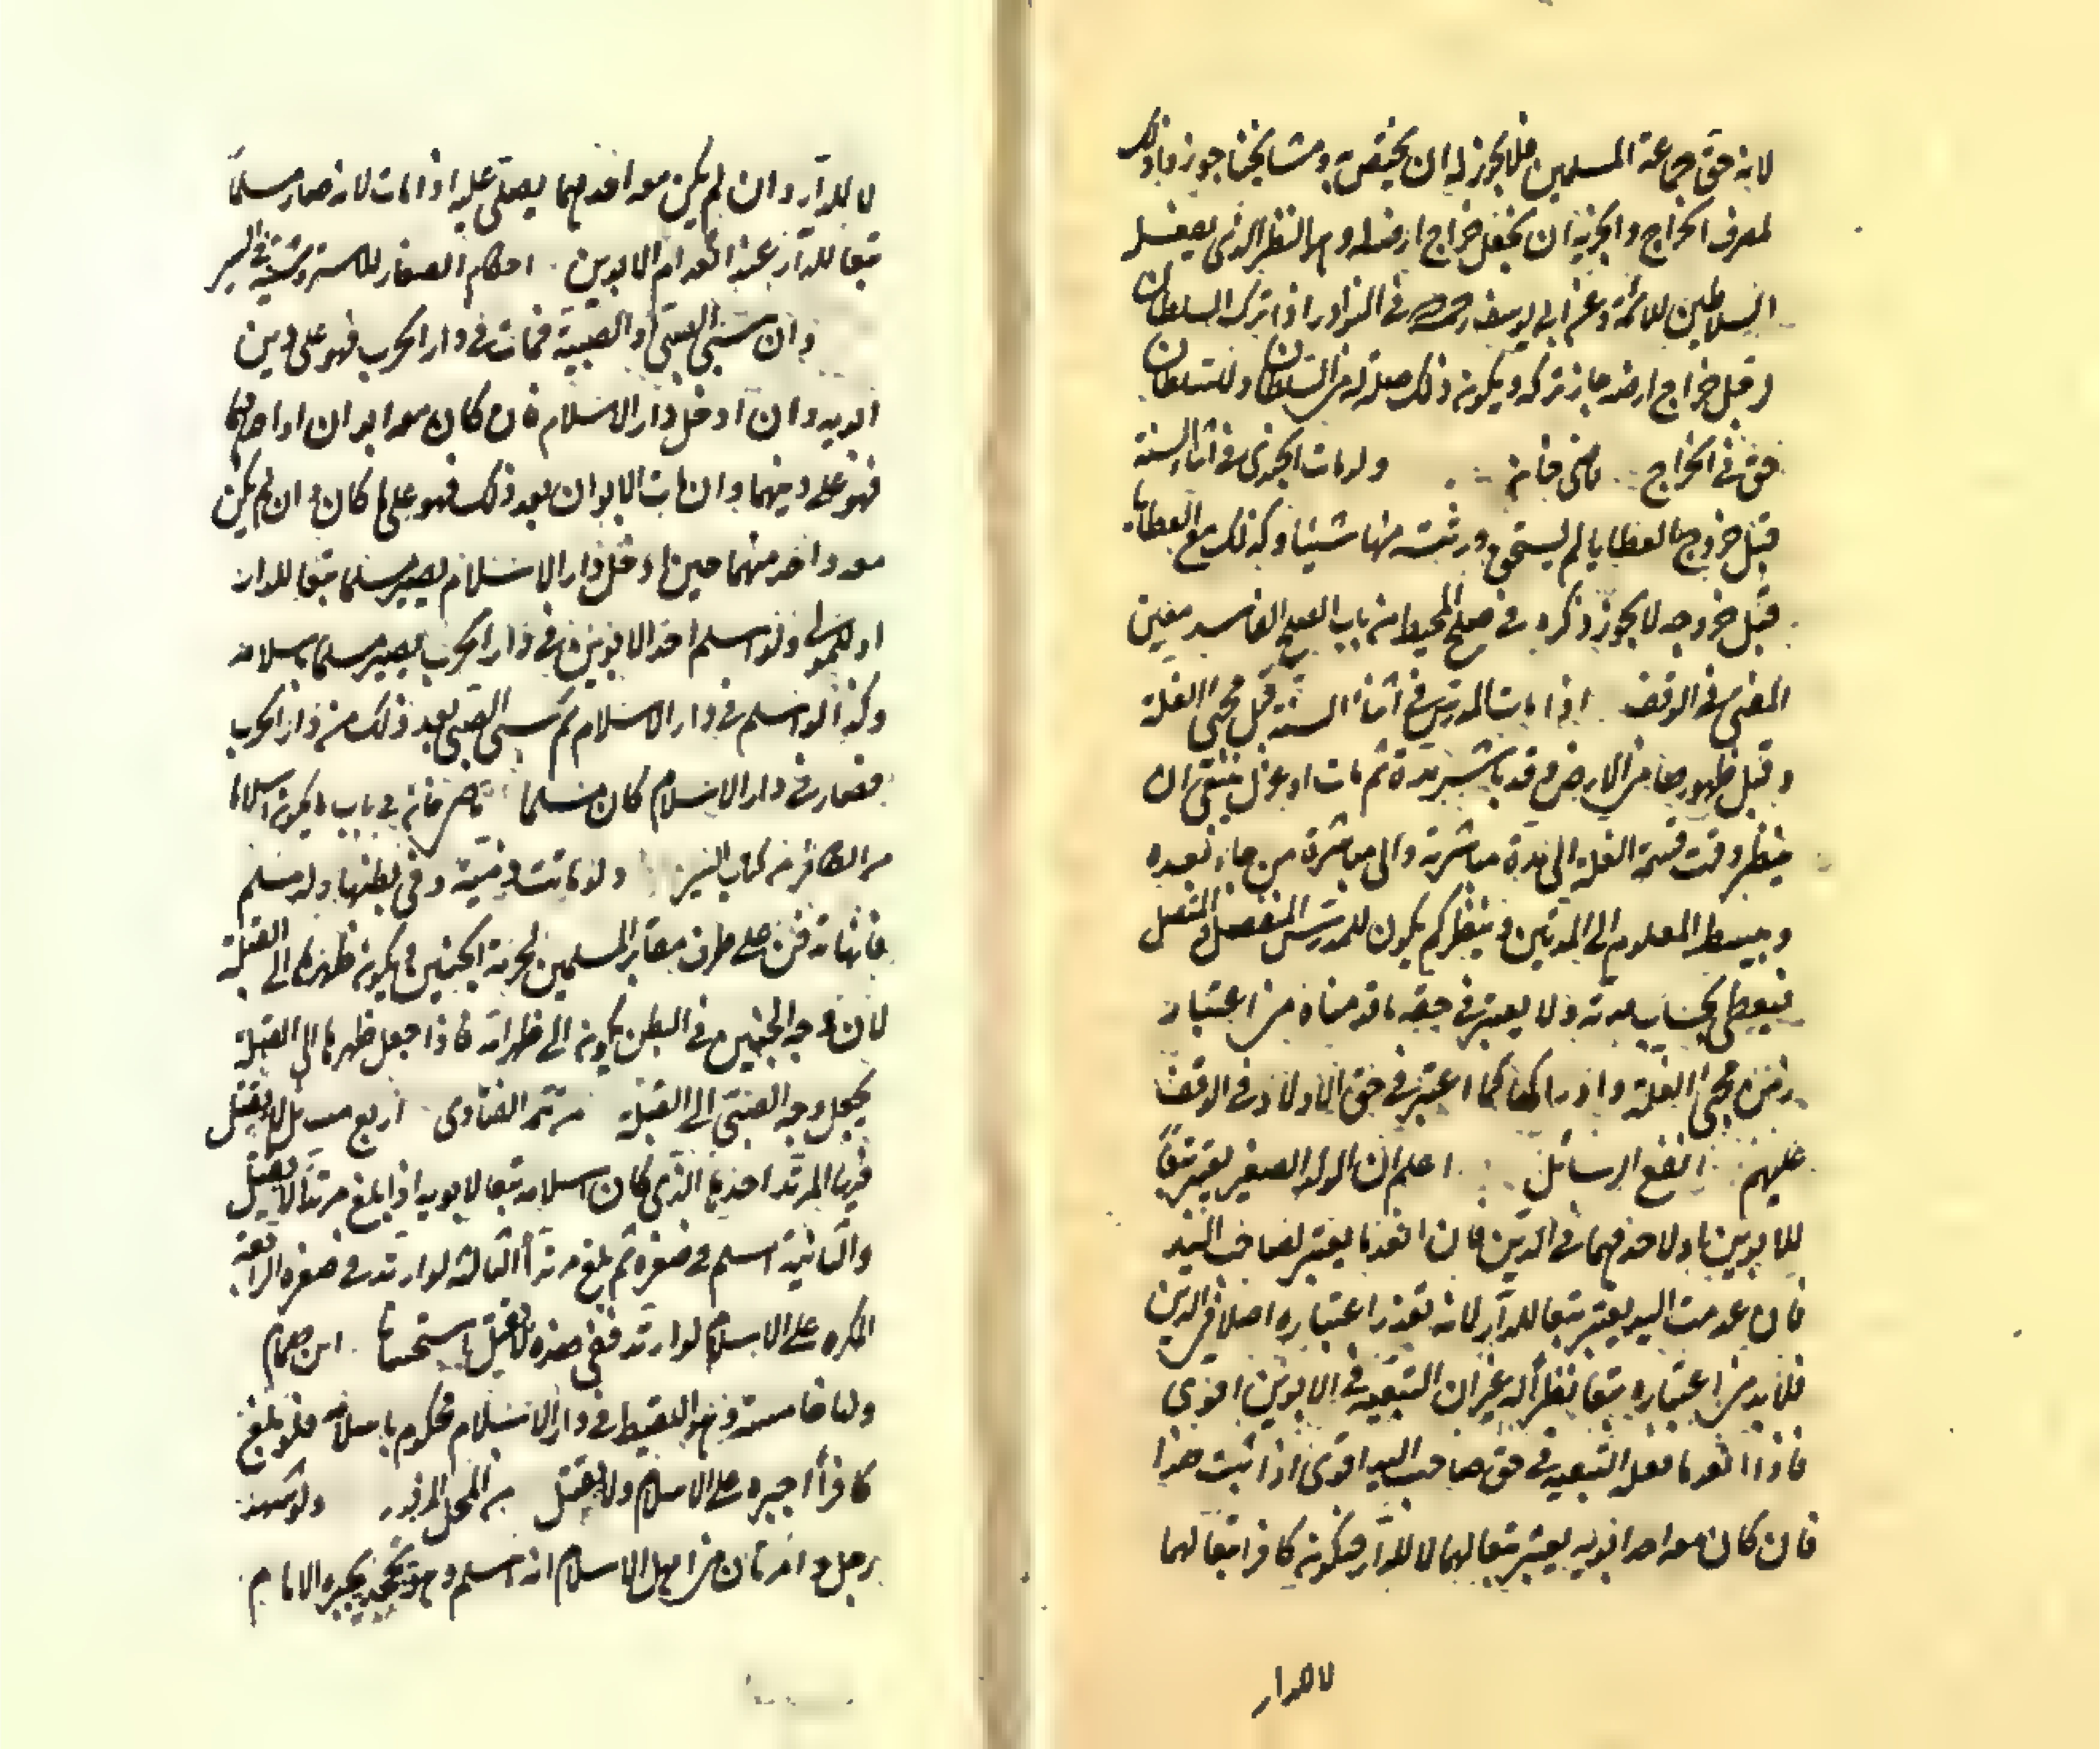 لانه حق جماعة المسلمين فلا يجوز له ان يختص به ومشايخنا جوزوا ذلك
لمصرف الخراج والجزية ان يجعل خراج ارضه له وهو النظر الذي يفعله
السلاطين للائمة وعن ابي يوسف رحمه الله في النوادر اذا ترك السلطان
لرجل خراج ارضه جاز تركه ويكون ذلك صلة له من السلطان وللسلطان
حق في الخراج قاضى خان ولو مات الجندى في اثناء السنة
قبل خروج العطايا لم يستحق ورثته منها شيئا وكذلك بيع العطايا
قبل خروجه لا يجوز ذكره في صلح المحيط من باب الصلح الفاسد معين
المفتى في الوقف اذا مات المدرس في اثناء السنة قبل مجئ الغلة
وقبل ظهورها من الارض وقد باشر مدة ثم مات او عزل ينبغى ان
ينظر وقت قسمة الغلة الى مدة مباشرته والى مباشرة من جاء بعده
ويبسط المعلوم الى المدرسين وينظر كم يكون للمدرس المنفصل والمتصل
فيعطى بحساب مدته ولا يعتبر في حقه ما قدمناه من اعتبار
زمن مجئ الغلة وادراكها كما اعتبر في حق الاولاد في الوقف
عليهم انفع الوسائل اعلم ان الولد الصغير يعتبر تبعا
للابوين او لاحدهما في الدين فان انعدما يعتبر لصاحب اليد
فان عدمت اليد يعتبر تبعا للدار لانه تعذر اعتباره اصلا في الدين
فلابد من اعتباره تبعا نظرا له غير ان التبعية في الابوين اقوى
فاذا انعدما فعله التبعية في حق صاحب اليد اقوى اذا ثبت هذا
فان كان معه احد ابويه يعتبر تبعا لهما لا للدار فيكون كافرا تبعا لهما
لا للدار
لا للدار وان لم يكن معه احدهما يصلى عليه اذا مات لانه صار مسلما
تبعا للدار عند انعدام الابوين احكام الصغار للاستروشنى في السير
وان سبى الصبى او الصبية فمات في دار الحرب فهو على دين
ابويه وان ادخل دار الاسلام فان كان معه ابوان او احدهما
فهو على دينهما وان مات الابوان بعد ذلك فهو على ما كان وان لم يكن
معه واحد منهما حين ادخل دار الاسلام يصير مسلما تبعا للدار
او للمولى ولو اسلم احد الابوين في دار الحرب يصير مسلما باسلامه
وكذا لو اسلم في دار الاسلام ثم سبى الصبى بعد ذلك من دار الحرب
فصار في دار الاسلام كان مسلما قاضى خان في باب ما يكون اسلاما
من الكافر من كتاب السير ولو ماتت ذمية وفي بطنها ولد مسلم
فانها تدفن على طرف مقابر المسلمين لحرمة الجنين ويكون ظهرها الى القبلة
لان وجه الجنين في البطن يكون الى ظهر امه فاذا جعل ظهرها الى القبلة
يجعل وجه الصبى الى القبلة من تتمة الفتاوى اربع مسائل لا يقتل
فيها المرتد احدها الذي كان اسلامه تبعا لابويه اذا بلغ مرتدا لا يقتل
والثانية اسلم في صغره ثم بلغ مرتدا الثالثة لو ارتد في صغره الرابعة
المكره على الاسلام لو ارتد ففى هذه لا يقتل استحسانا ابن همام
ولها خامسة وهو اللقيط في دار الاسلام محكوم باسلامه فلو بلغ
كافرا اجبره على الاسلام ولا يقتل من المحل المزبور ولو شهد
رجل وامرأتان من اهل الاسلام انه اسلم وهو يجحد يجبره الامام